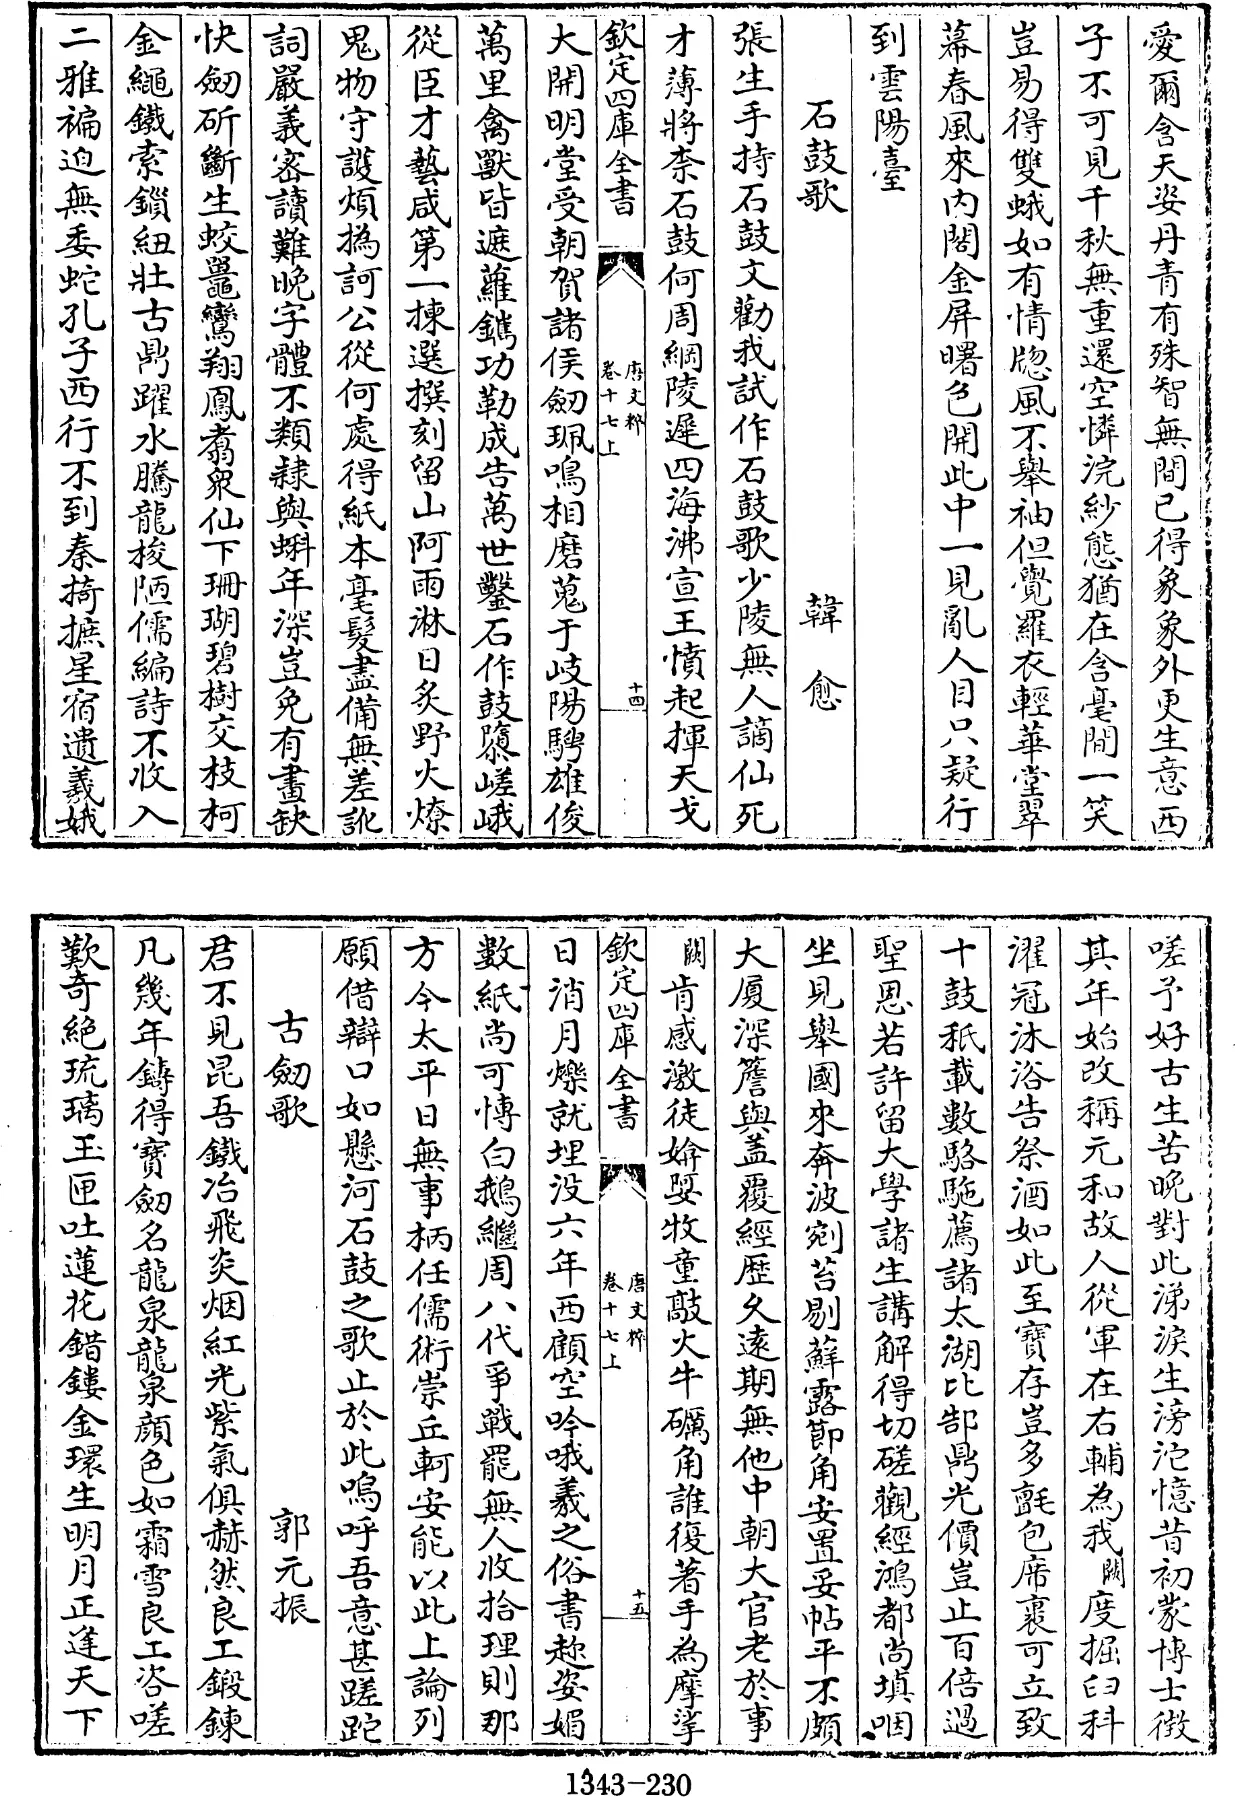 愛爾含天姿丹青有殊智無間已得象象外更生意西
子不可見千秋無重還空憐浣紗態猶在含毫間一笑
豈易得雙蛾如有情牕風不舉袖但覺羅衣輕華堂翠
幕春風來内閣金屏曙色開此中一見亂人目只疑行
到雲陽臺
石鼓歌 韓愈
張生手持石鼓文勸我試作石鼓歌少陵無人謫仙死
才薄將柰石鼓何周綱陵遲四海沸宣王憤起揮天戈
欽定四庫全書 唐文粹 卷十七上 十四
大開明堂受朝賀諸侯劒珮鳴相磨蒐于岐陽騁雄俊
萬里禽獸皆遮羅鐫功勒成告萬世鑿石作鼓隳嵯峨
從臣才藝咸第一揀選撰刻留山阿雨淋日炙野火燎
鬼物守護煩撝訶公從何處得紙本毫髮盡備無差訛
詞嚴義宻讀難曉字體不類隷與蝌年深豈免有畫缺
快劒斫斷生蛟鼉鸞翔鳳翥衆仙下珊瑚碧樹交枝柯
金繩鐵索鎻紐壯古鼎躍水騰龍梭陋儒編詩不收入
二雅褊迫無委蛇孔子西行不到秦掎摭星宿遺羲娥
嗟予好古生苦晩對此涕淚生滂沱憶昔初蒙博士徴
其年始改稱元和故人從軍在右輔為我闕度掘臼科
濯冠沐浴告祭酒如此至寶存豈多氈包席裹可立致
十鼓秖載數駱駞薦諸太湖比郜鼎光價豈止百倍過
聖恩若許留大學諸生講解得切磋觀經鴻都尚填咽
坐見舉國來奔波剜苔剔蘚露節角安置妥帖平不頗
大厦深簷與盖覆經歴久遠期無他中朝大官老於事
闕肯感激徒媕娿牧童敲火牛礪角誰復著手為摩挲
欽定四庫全書 唐文粹 卷十七上 十五
日消月爍就埋没六年西顧空吟哦羲之俗書趂姿媚
數紙尚可博白鵝繼周八代爭戰罷無人收拾理則那
方今太平日無事柄任儒術崇丘軻安能以此上論列
願借辯口如懸河石鼓之歌止於此嗚呼吾意甚蹉跎
古劒歌 郭元振
君不見昆吾鐵冶飛炎烟紅光紫氣俱赫然良工鍛鍊
凡幾年鑄得寶劒名龍泉龍泉顔色如霜雪良工咨嗟
歎奇絶琉璃玉匣吐蓮花錯鏤金環生明月正逢天下
1343-230